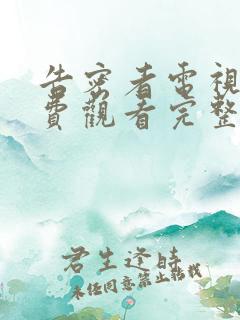 告密者電視
費觀看完整
君生逢時
未经同意禁止转载